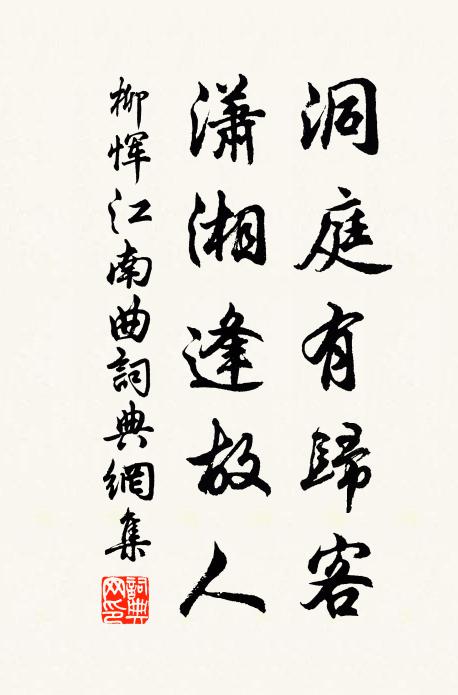 洞庭有歸客
瀟湘逢故人
柳惲江南曲詞典網集
詞典网印